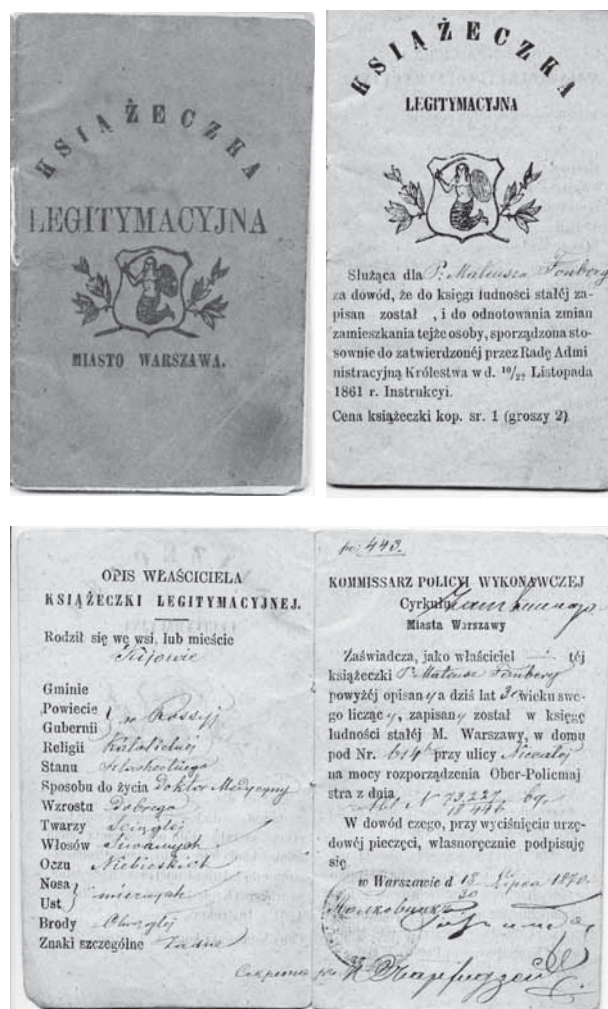 KSIĄŻECZKA
LEGITYMACYJNA
MIASTO WARSZAWA.
KSIĄŻECZKA
LEGITYMACYJNA
Służąca dla P: Mateusza Fonberg
za dowód, że do księgi ludności stałéj za-
pisan został , i do odnotowania zmian
zamieszkania tejże osoby, sporządzona sto-
sownie do zatwierdzonéj przez Radę Admi
nistracyjną Królestwa w d. 10/22 Listopada
1861 r. Instrukcyi.
Cena książeczki kop. sr. 1 (groszy 2)
OPIS WŁAŚCICIELA
KSIĄŻECZKI LEGITYMACYJNEJ.
Rodził się we wsi, lub mieście
Kijowie
Gminie
Powiecie
Gubernii w Rossyj
Religii Katolickiej
Stanu Szlacheckiego
Sposobu do życia Doktor Medycyny
Wzrostu Dobrego
Twarzy Ściągłej
Włosów
Oczu Niebieskich
Nosa
Ust miernych
Brody Okrągłej
Znaki szczególne żadne
443.
KOMMISSARZ POLICYI WYKONAWCZEJ
Cyrkułu
Miasta Warszawy
Zaświadcza, jako właściciel téj
książeczki P: Mateusz Fonberg
powyżéj opisany a dziś lat wieku swe-
go liczący, zapisany został w księgę
ludności stałéj M. Warszawy, w domu
pod Nr. 614 przy ulicy
na mocy rozporządzenia Ober-Policmaj
stra z dnia N 73,227
W dowód czego, przy wyciśnięciu urzę-
dowéj pieczęci, własnoręcznie podpisuję
się
w Warszawie d 18/30 Lipca 1870.